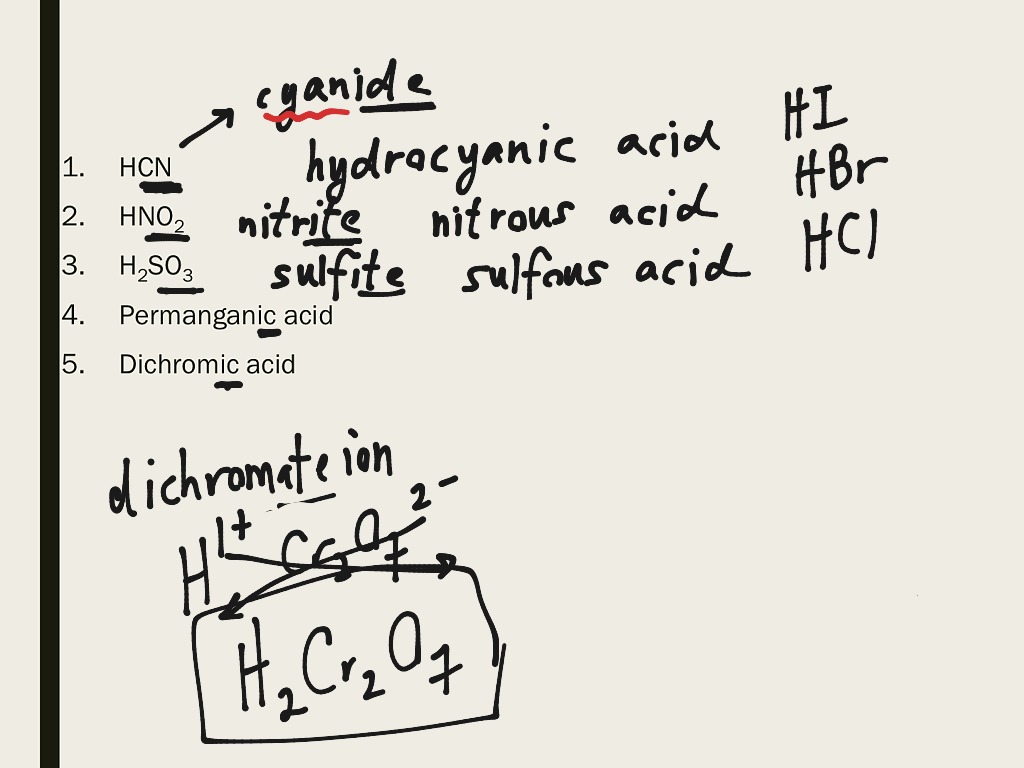 cyanide
HI
hydrocyanic acid
1. HCN
HBr
2. HNO₂ nitrite nitrous acid
HCl
3. H₂SO₃ sulfite sulfrous acid
4. Permanganic acid
5. Dichromic acid
dichromate ion
H¹⁺ Cr₂O₇²⁻
H₂Cr₂O₇